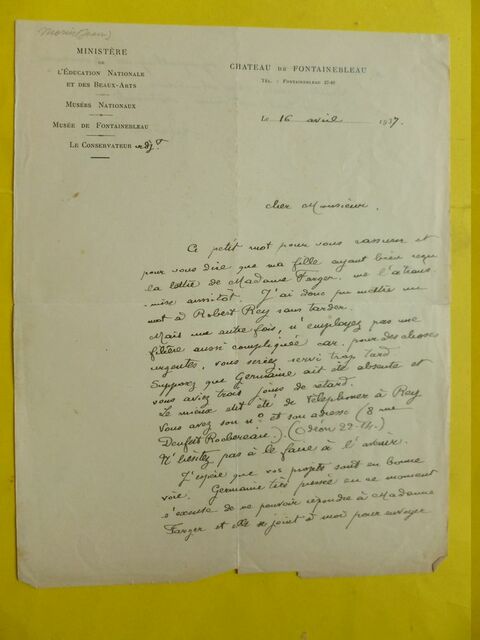 Morin (Jean)
MINISTÈRE
DE
L'ÉDUCATION NATIONALE
ET DES BEAUX-ARTS
MUSÉES NATIONAUX
MUSÉE DE FONTAINEBLEAU
LE CONSERVATEUR adjt
CHATEAU DE FONTAINEBLEAU
TÉL. : FONTAINEBLEAU 27-40
LE 16 avril 1937.
Cher Monsieur,
Ce petit mot pour vous rassurer et
pour vous dire que ma fille ayant bien reçu
la lettre de Madame Farger me l'a trans-
mise aussitôt. J'ai donc pu mettre un
mot à Robert Rey sans tarder.
Mais une autre fois, n'employez pas une
filière aussi compliquée car, pour des choses
urgentes, vous seriez servi trop tard
Supposez que Germaine ait été absente et
vous aviez trois jours de retard.
Le mieux eût été de téléphoner à Rey
Vous avez son no et son adresse (8 rue
Denfert Rochereau). (Odéon 22-14.)
N'hésitez pas à le faire à l'avenir.
J'espère que vos projets sont en bonne
voie. Germaine très pressée en ce moment
s'excuse de ne pouvoir répondre à Madame
Farger et elle se joint à moi pour envoyer